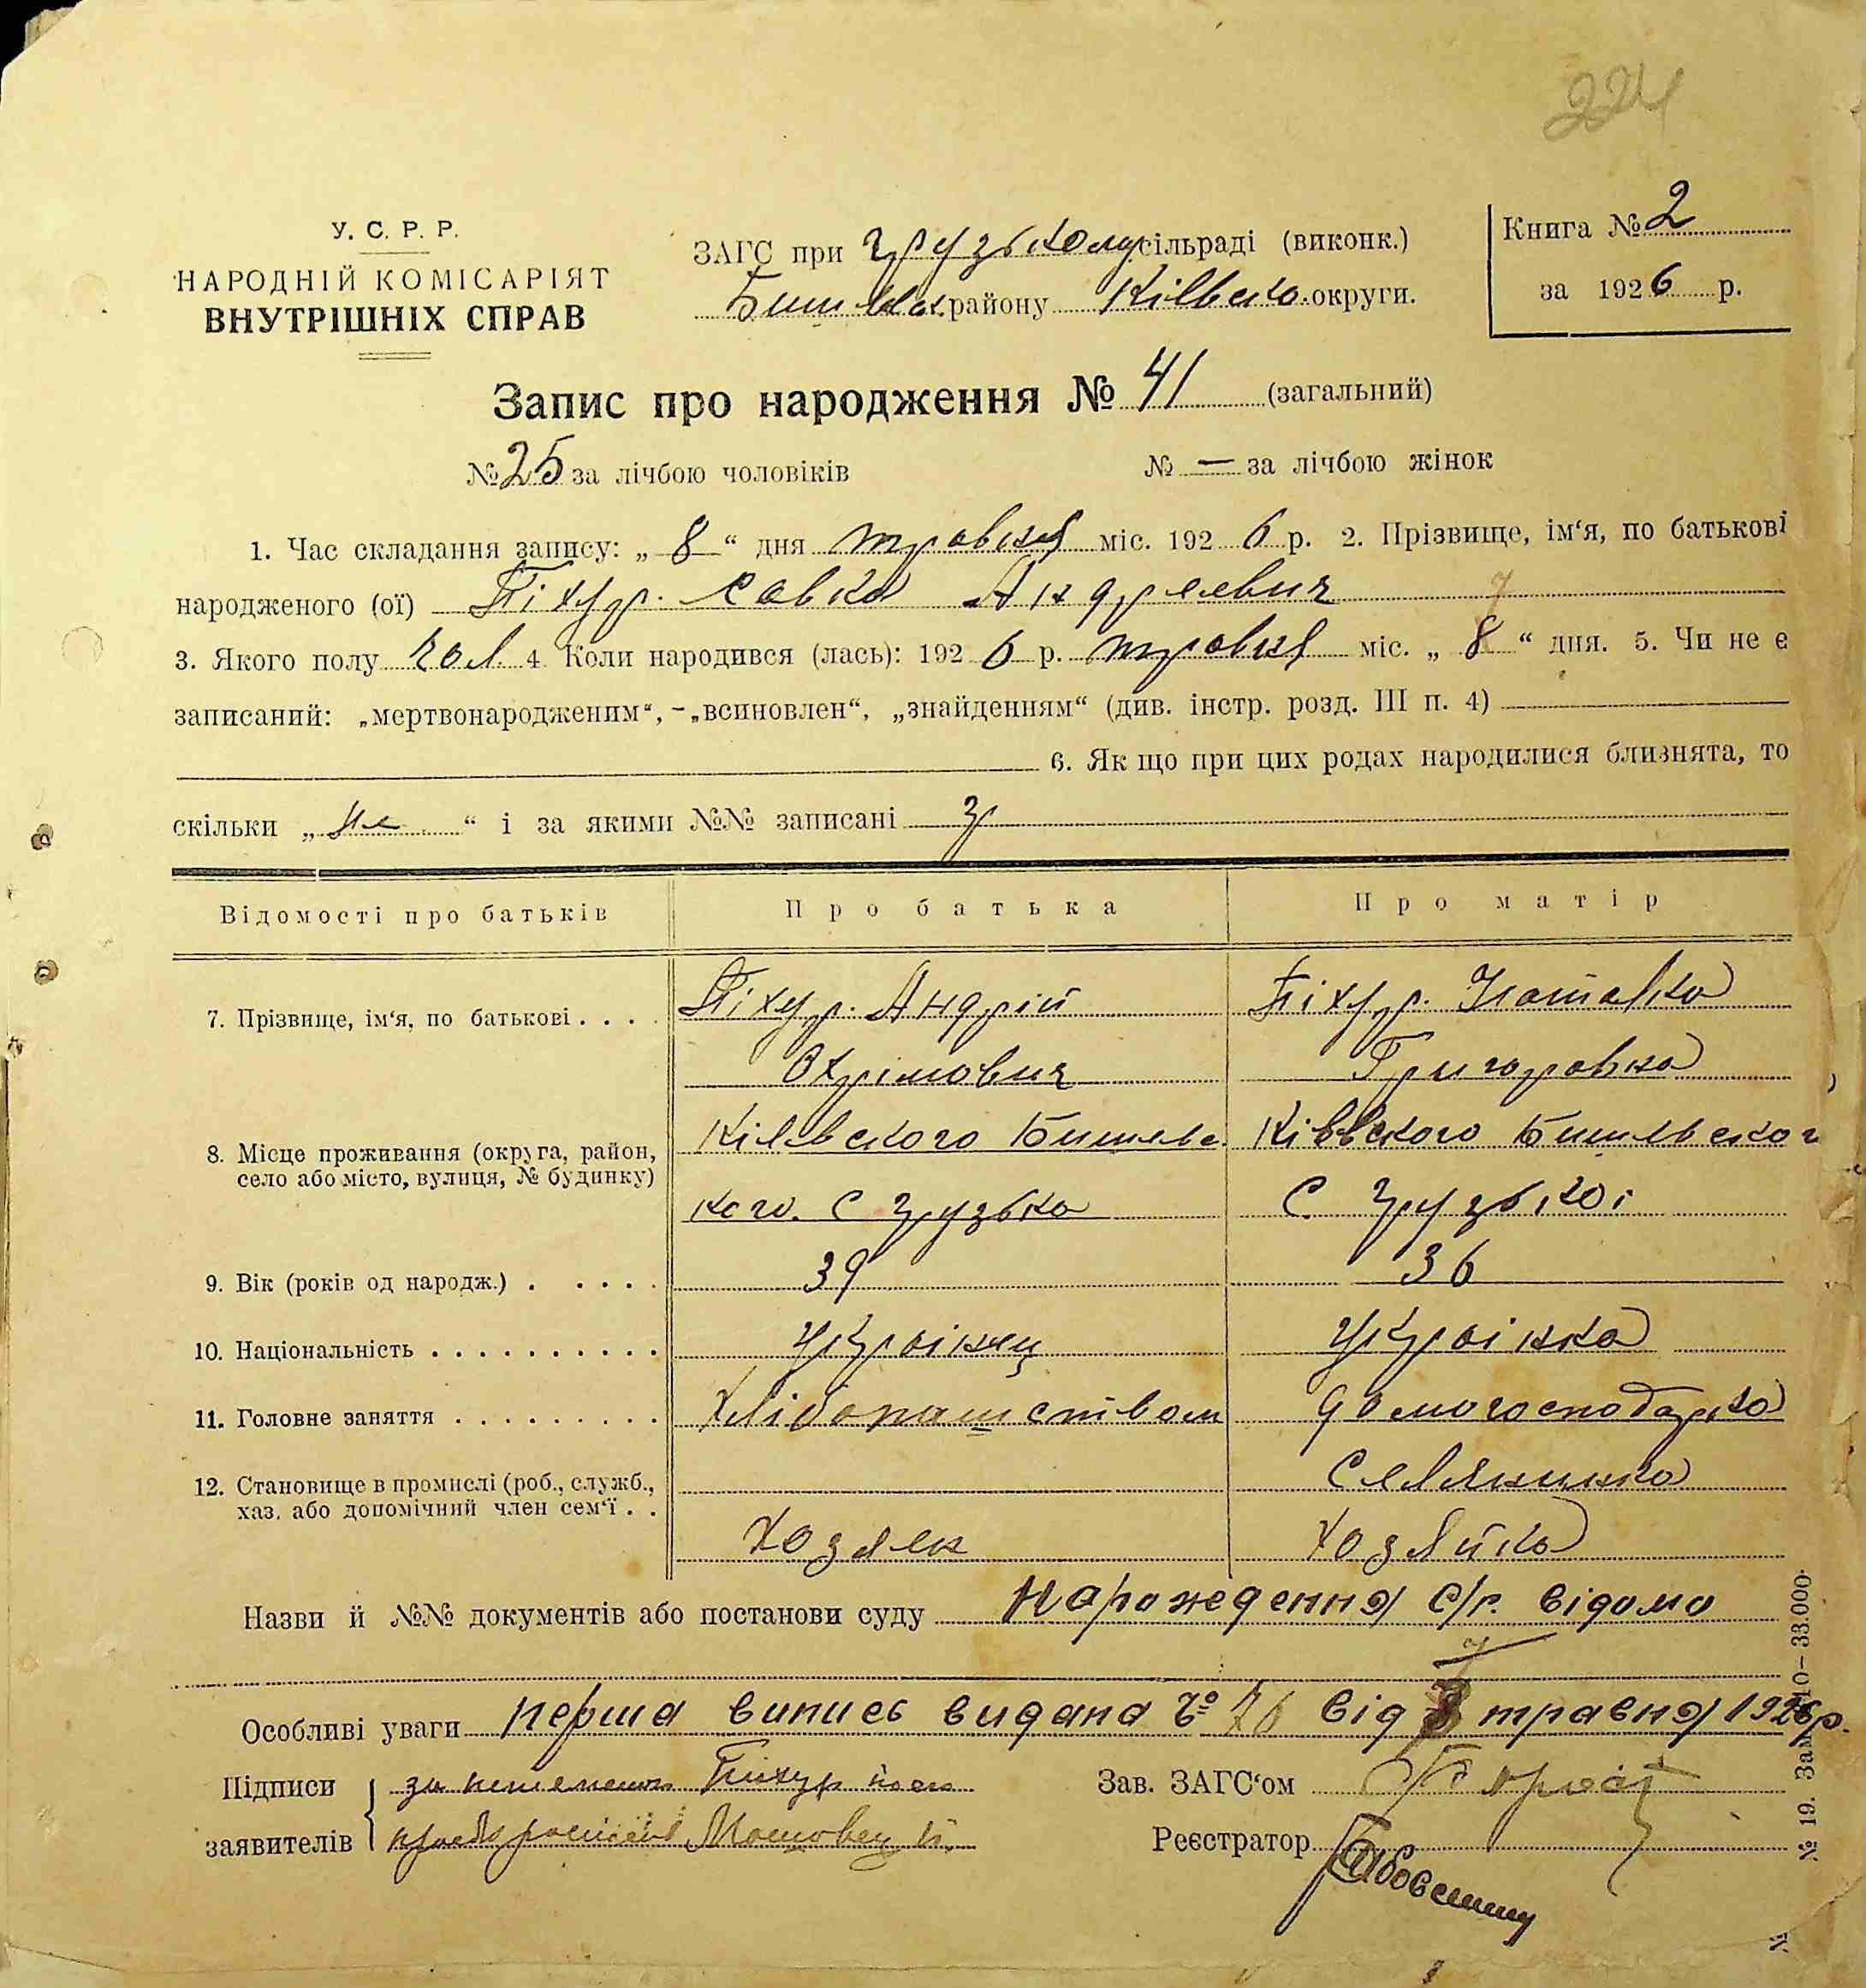 224
У. С. Р. Р.
НАРОДНІЙ КОМІСАРІЯТ
ВНУТРІШНІХ СПРАВ
ЗАГС при Грузькому сільраді (виконк.)
Бишевск. району Кіівсько. округи.
Книга № 2
за 1926 р.
Запис про народження № 41 (загальний)
№ 25 за лічбою чоловіків № — за лічбою жінок
1. Час складання запису: „ 8 “ дня травня міс. 1926 р. 2. Прізвище, ім‘я, по батькові
народженого (ої) Піхур. Савка Андреевич
3. Якого полу чол. 4 Коли народився (лась): 1926 р. травня міс. „ 8 “ дня. 5. Чи не є
записаний: „мертвонародженим“, -„всиновлен“, „знайденням“ (див. інстр. розд. III п. 4)
6. Як що при цих родах народилися близнята, то
скільки „ не “ і за якими №№ записані
Відомості про батьків Про батька Про матір
7. Прізвище, ім‘я, по батькові . . . . Піхур. Андрій Піхур. Наталка
Охрімович Григоровна
8. Місце проживання (округа, район, Кіівского Бишевс. Кіівского Бишевског
село або місто, вулиця, № будинку)
кого. С Грузька С. Грузькоі
9. Вік (років од народж.) . . . . . 39 36
10. Національність . . . . . . . . . . Украінец Украінка
11. Головне заняття . . . . . . . . . Хлібопашством домогосподарка
12. Становище в промислі (роб., служб., Селянинка
хаз. або допомічний член сем‘ї . .
Хозяен Хозяйка
Назви й №№ документів або постанови суду Нарождення С/р. відомо
7
Особливі уваги перша випись видана № 76 від 8 травня 1926 р.
Підписи Піхур
заявителів
Зав. ЗАГС‘ом
Реєстратор
№ 19. Зам. 10–33.000.